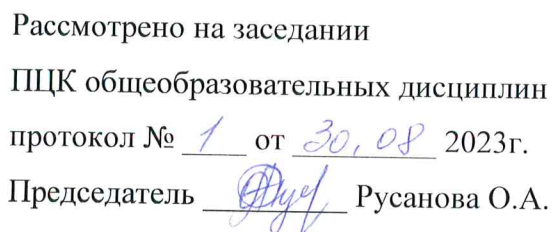 Рассмотрено на заседании
ПЦК общеобразовательных дисциплин
протокол № 1 от 30.08 2023г.
Председатель Русанова О.А.